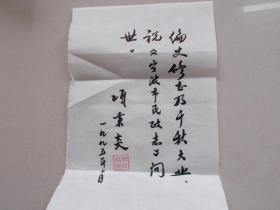 编史修志乃千秋大业。
祝《宁波市民政志》问
世。
项秉炎
一九九五年月